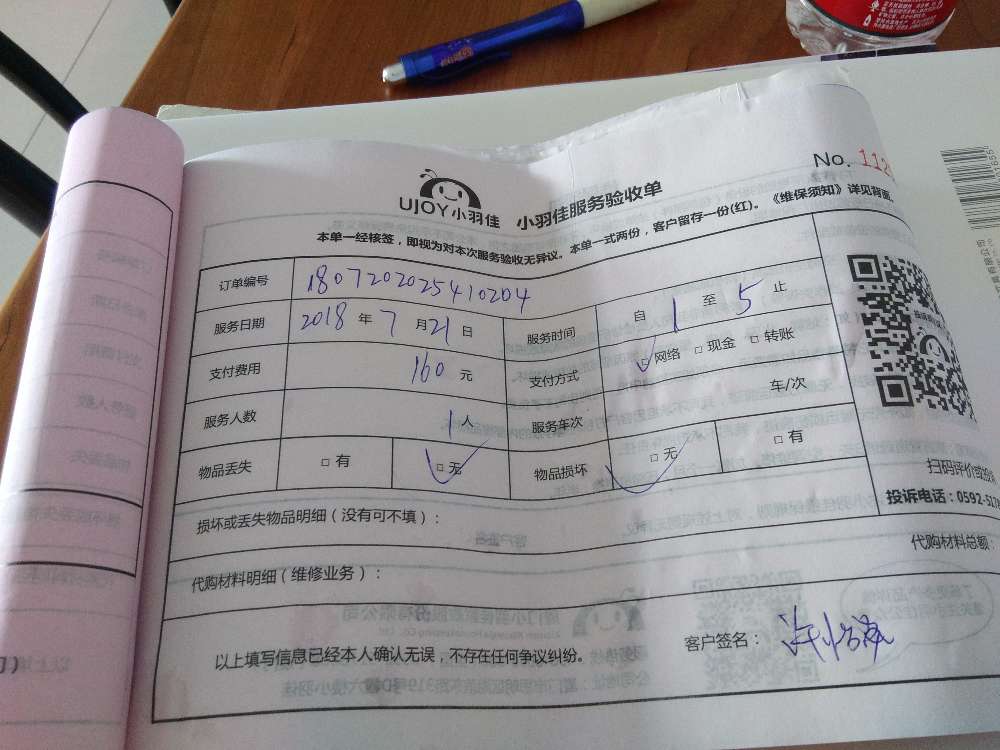 No. 112
UJOY小羽佳 小羽佳服务验收单
本单一经核签，即视为对本次服务验收无异议。本单一式两份，客户留存一份(红)。《维保须知》详见背面。
订单编号 180720202541 0204
服务日期 2018 年 7 月 21 日 服务时间 自 1 至 5 止
支付费用 160 元 支付方式 □网络 □现金 □转账
服务人数 1人 服务车次 车/次
物品丢失 □有 □无 物品损坏 □无 □有
扫码评价或投
投诉电话：0592-517
损坏或丢失物品明细（没有可不填）：
代购材料总额：
代购材料明细（维修业务）：
客户签名：
以上填写信息已经本人确认无误，不存在任何争议纠纷。